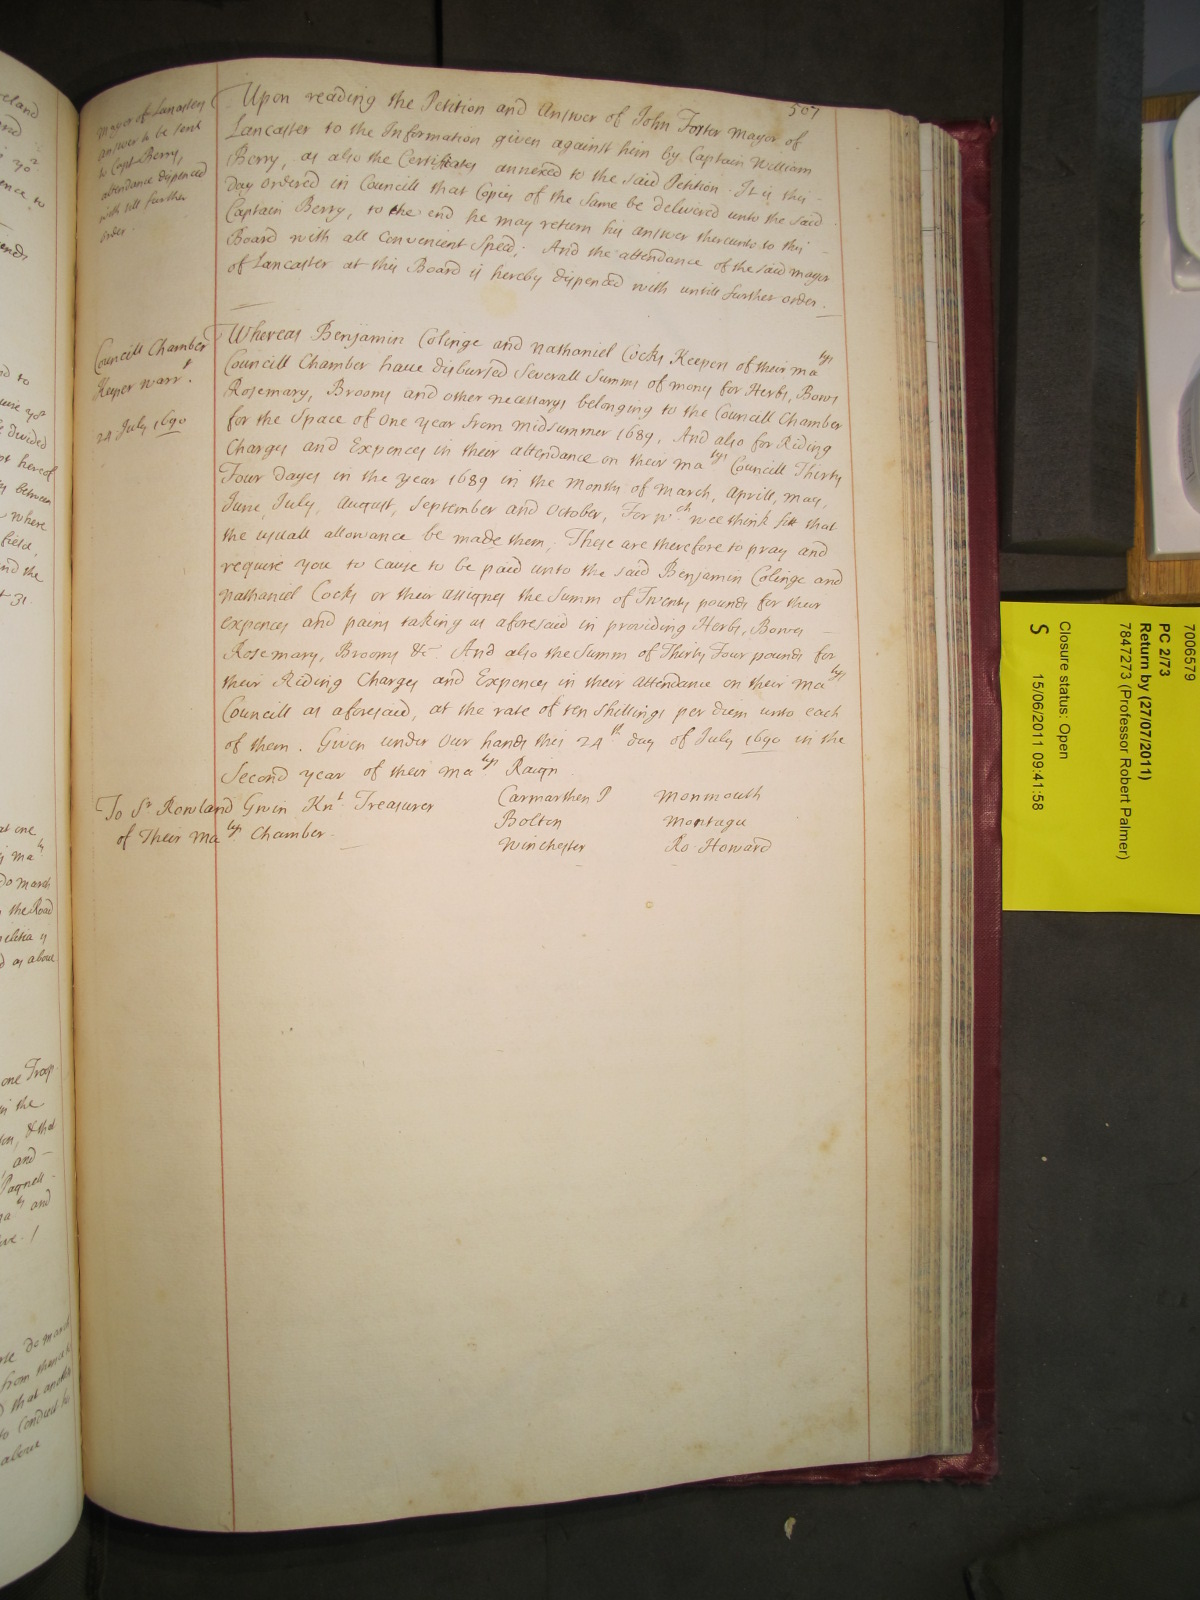 507
Mayor of Lancaster
Answer to be sent
to Capt Berry,
attendance dispenced
with till further
order.
Upon reading the Petition and Answer of John Foster Mayor of
Lancaster to the Information given against him by Captain William
Berry, as also the Certificates annexed to the said Petition. It is this
Day ordered in Councill that Copies of the same be delivered unto the said
Captain Berry, to the end he may return his answer thereunto to this
Board with all convenient speed; And the attendance of the said Mayor
of Lancaster at this Board is hereby dispenced with untill further order.
Councill Chamber
Keeper warr.t
24 July 1690
Whereas Benjamin Colinge and Nathaniel Cocks Keepers of their Ma tys
Councill Chamber have disbursed severall summs of mony for Herbs, Bows
Rosemary, Brooms and other necessarys belonging to the Councill Chamber
for the space of one year from Midsummer 1689, And also for Riding
Charges and Expences in their attendance on their Ma tys Councill Thirty
Four dayes in the year 1689 in the Months of March, Aprill, May,
June, July, August, September and October, For w.ch wee think fitt that
the usuall allowance be made them; These are therefore to pray and
require you to cause to be paid unto the said Benjamin Colinge and
Nathaniel Cocks or their assignes the summ of Twenty pounds for their
expences and pains taking as aforesaid in providing Herbs, Bowes
Rosemary, Brooms &c. And also the summ of Thirty Four pounds for
their Riding Charges and Expences in their attendance on their Ma tys
Councill as aforesaid, at the rate of ten shillings per diem unto each
of them. Given under our hands this 24th day of July 1690 in the
Second year of their Ma tys Raign
To Sr Rowland Gwin Knt. Treasurer
of Their Ma tys Chamber.
Carmarthen P Monmouth
Bolton Montagu
Winchester Ro: Howard
7006579
PC 2/73
Return by (27/07/2011)
7847273 (Professor Robert Palmer)
Closure status: Open
S 15/06/2011 09:41:58